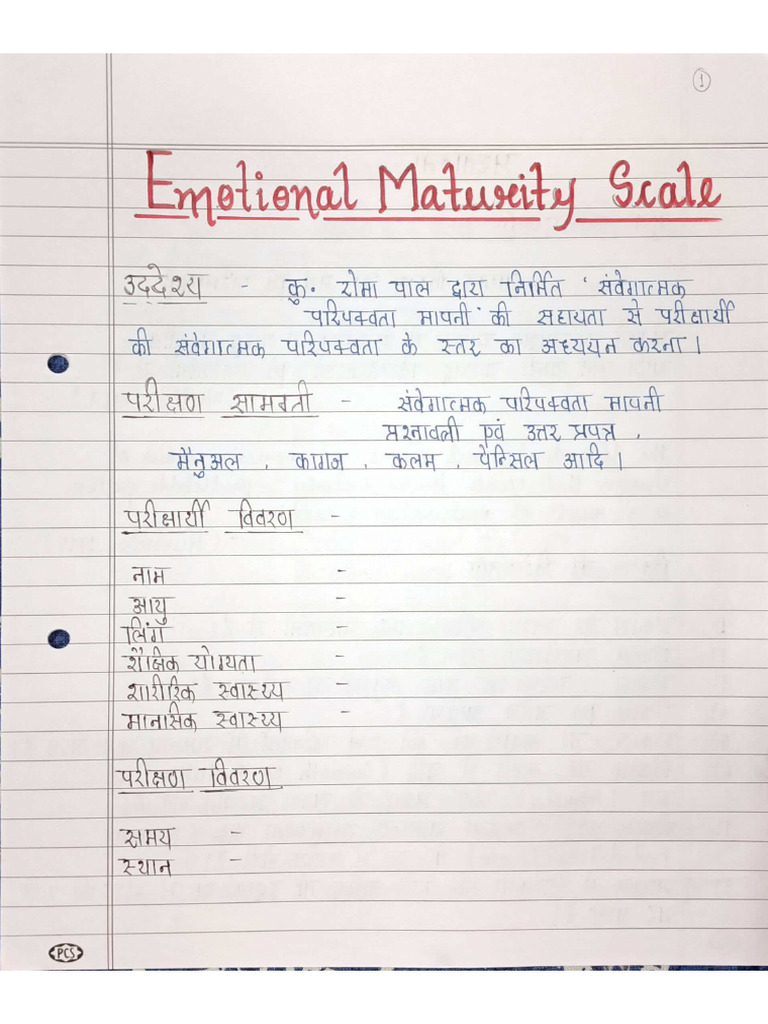 1
Emotional Maturity Scale
उद्देश्य - कु. रोमा पाल द्वारा निर्मित 'संवेगात्मक
परिपक्वता मापनी' की सहायता से परीक्षार्थी
की संवेगात्मक परिपक्वता के स्तर का अध्ययन करना।
परीक्षण सामग्री - संवेगात्मक परिपक्वता मापनी
प्रश्नावली एवं उत्तर प्रपत्र,
मैनुअल, कागज, कलम, पेन्सिल आदि।
परीक्षार्थी विवरण -
नाम -
आयु -
लिंग -
शैक्षिक योग्यता -
शारीरिक स्वास्थ्य -
मानसिक स्वास्थ्य -
परीक्षण विवरण
समय -
स्थान -
PCS